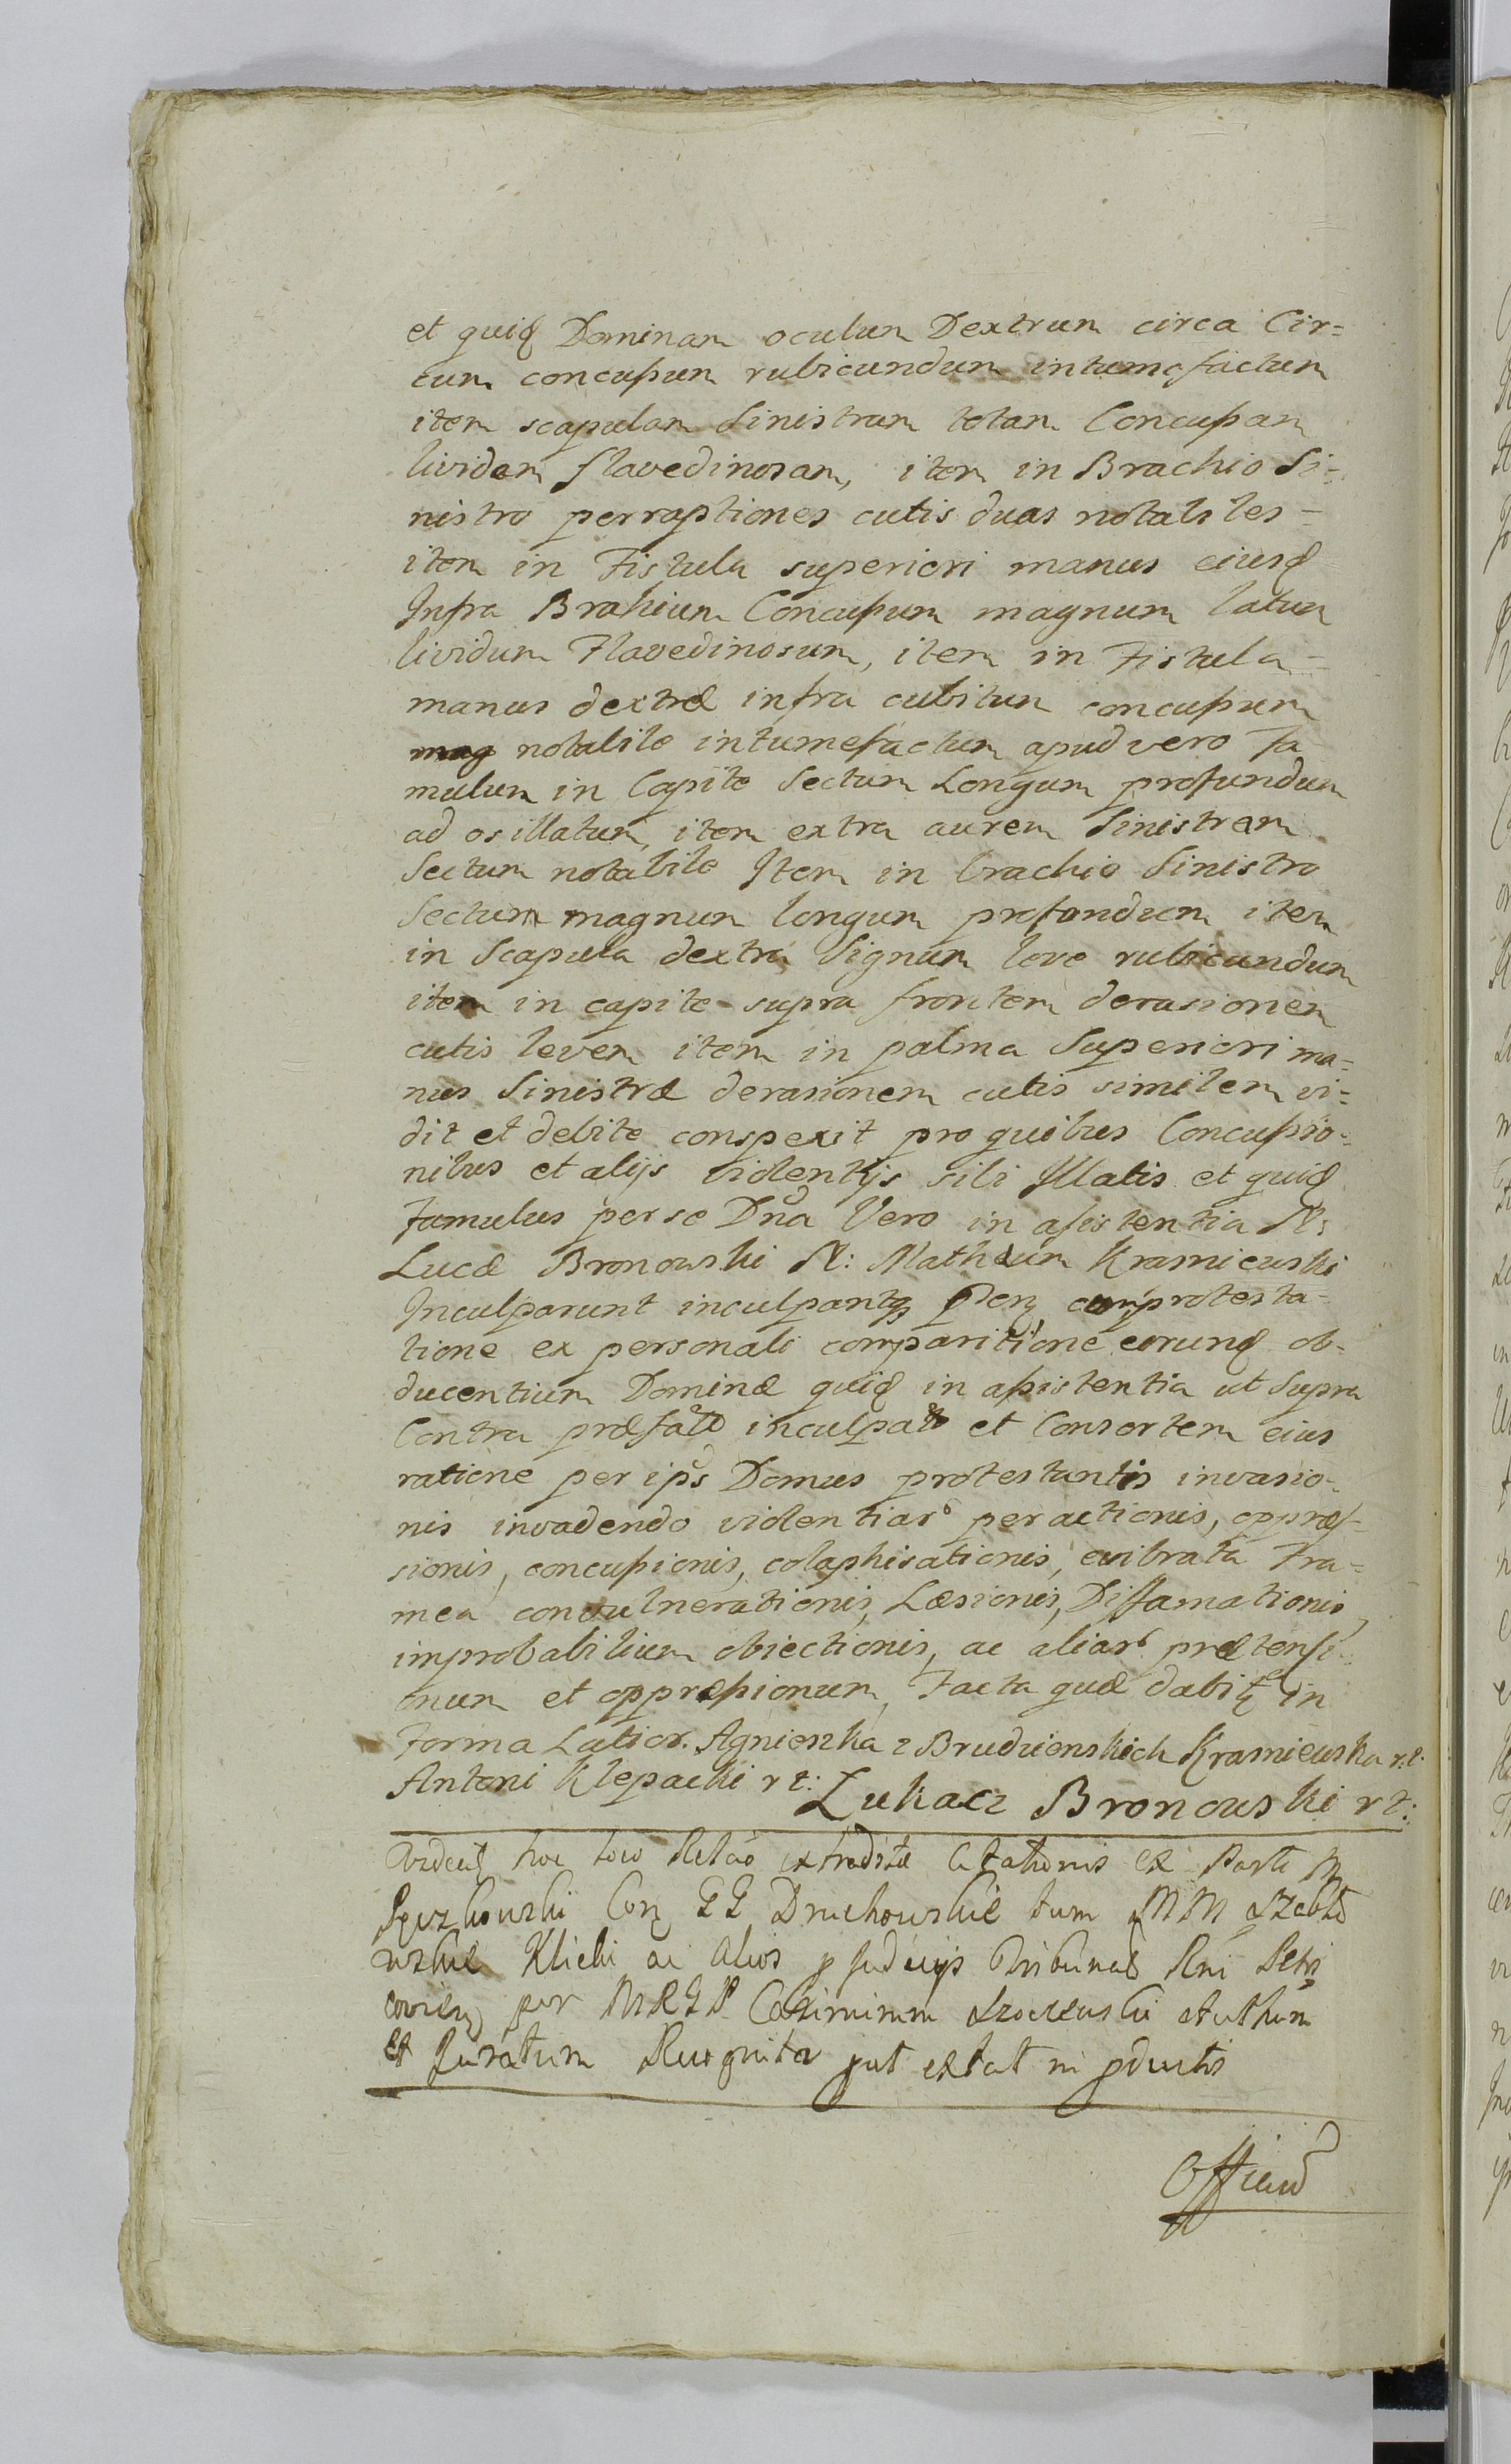 et quid Dominam oculum Dextrum circa Cir=
cum concussum rubicundum intumefactum
item scapulam Sinistram totam Concussam
lividam flavedinosam, item in Brachio Si-
nistro perraptiones cutis duas notabiles =
item in Fistula superiori manus eiusd
Infra Brahium Concussum magnum latum
lividum Flavedinosum, item in Fistula =
manus dextræ infra cubitum concussum
notabile intumefactum apud vero Fa
mulum in Capite Sectum Longum profundum
ad os illatum, item extra aurem Sinistram
Sectum notabile Item in brachio Sinistro
Sectum magnum longum profundum item
in Scapula dextra Signum leve rubicundum
item in capite supra frontem derasionem
cutis levem item in palma Superiori ma=
nus Sinistræ derasionem cutis similem vi=
dit et debite conspexit pro quibus Concussio=
nibus et alijs violentijs sibi Illatis et quid
Famulus per se Dna Vero in assistentia N:
Lucæ Bronowski N: Matheum Krasniewski
Inculparunt inculpantq cum protesta-
tione ex personali comparitione eorund ob-
ducentium Dominæ quid in assistentia ut Supra
Contra præfato inculpato et Consortem eius
ratione per ips Domus protestantis invasio-
nis invadendo violentiar peractionis, oppræs-
sionis, concussionis, colaphisationis, evibrata Fra=
mea convulnerationis, Læsionis, Diffamationis,
improbabilium obiectionis, ac aliar prætensi-
onum et oppræssionum, Facta quæ dabit in
Forma Latior. Agnieszka z Brudzienskich Krasniewska r.t.
Antoni Klepacki rt: Lukacz Bronowski rt:
hoc loco Relao extraditæ Citationis ex Parte M
Con GG Druchowskie tum MM
Klicki ac alios p Judicijs Tribunal Rni Petri
covien per Casimirum
et Juratum Recognita put extat in pductis
Officiu